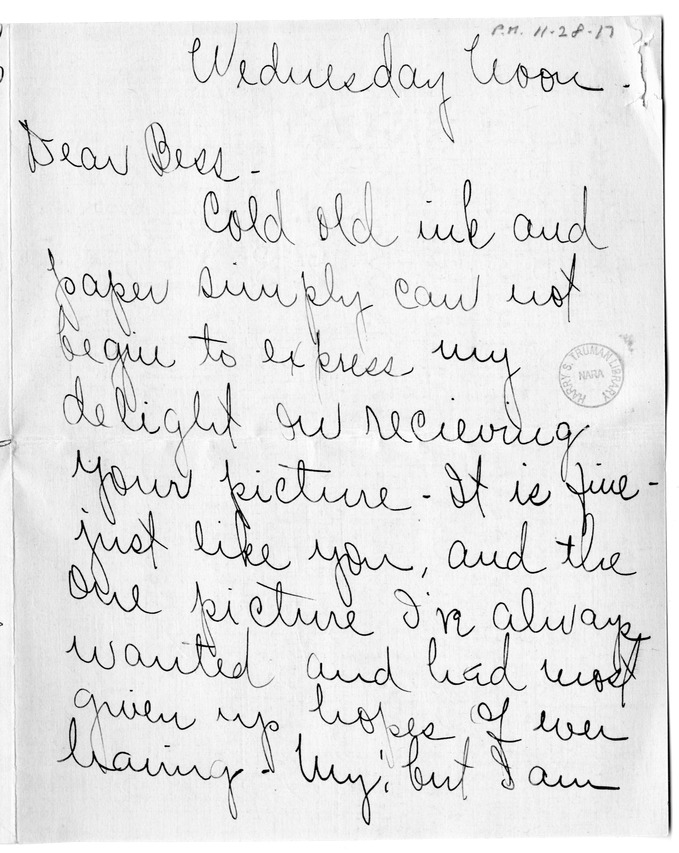 P.M. 11-28-17
Wednesday Noon.
Dear Bess-
Cold old ink and
paper simply can not
begin to express my
delight on recieving
your picture - It is fine -
just like you, and the
one picture I've always
wanted and had most
given up hopes of ever
having - My, but I am
HARRY S. TRUMAN LIBRARY
NARA